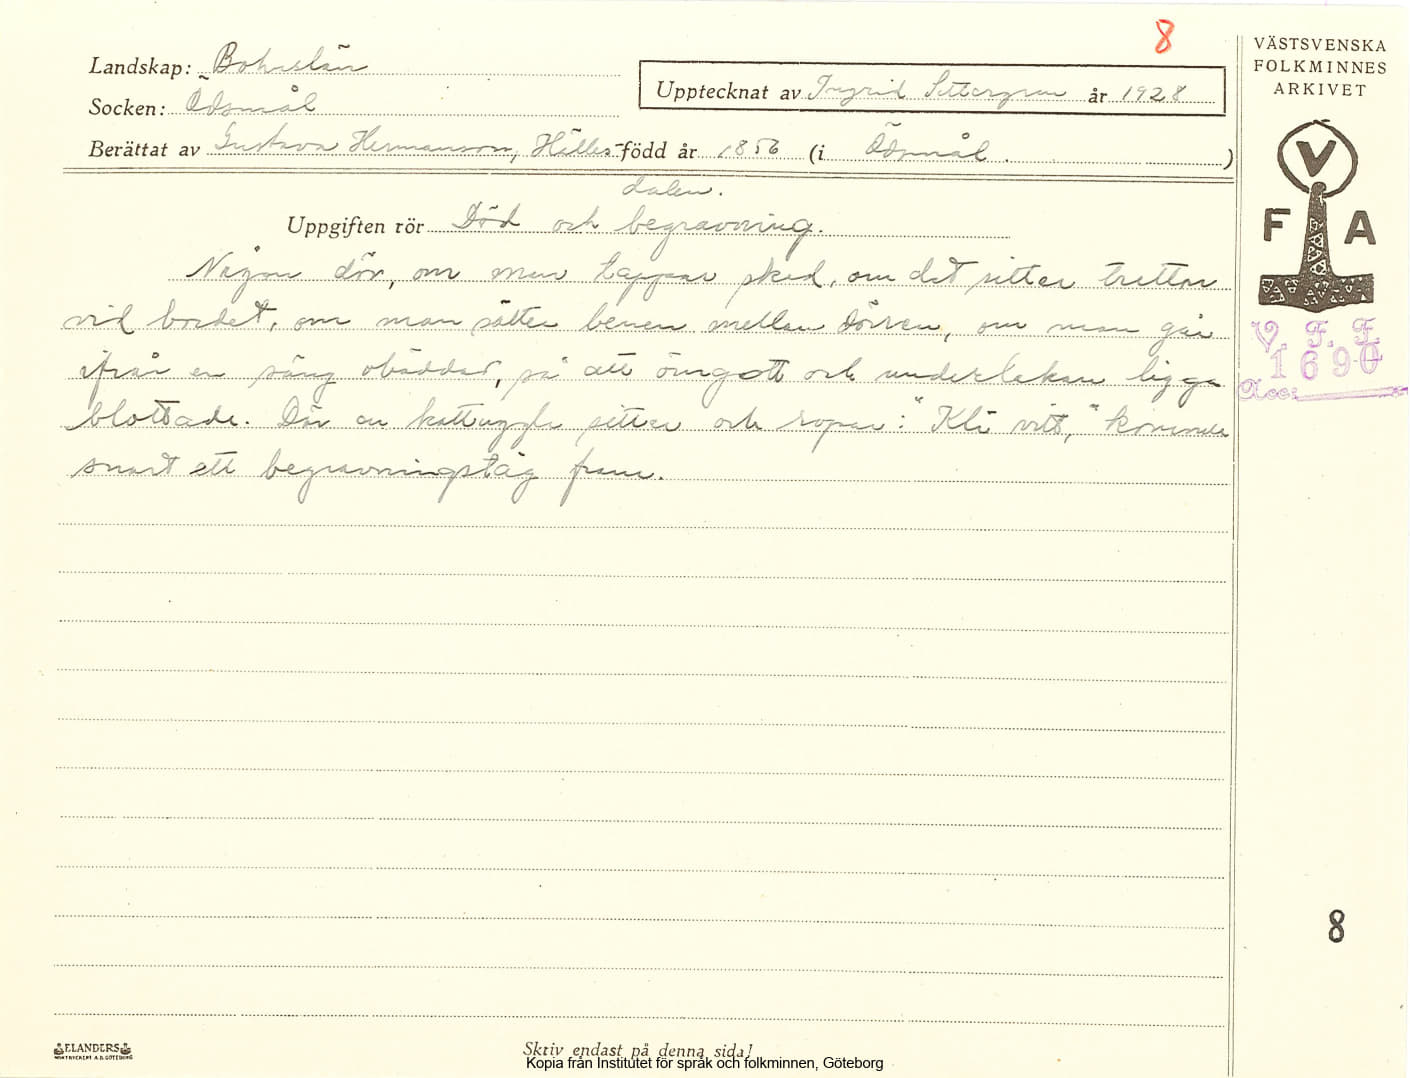 8
VÄSTSVENSKA
FOLKMINNES
ARKIVET
Landskap: Bohuslän
Upptecknat av Ingrid Settergren år 1928
Socken: Ödsmål
Berättat av Gustava Hermanson, Hälle- född år 1856 (i Ödsmål. )
dalen.
Uppgiften rör Död och begravning.
V
F A
V. F. F.
1690
Acc:
Någon dör, om man tappar sked, om det sitter tretton
vid bordet, om man sätter benen mellan dörren, om man går
ifrån en säng obäddad, så att örngott och underlakan ligga
blottade. Där en kattuggla sitter och ropar: "Klä vitt," kommer
snart ett begravningståg fram.
8
ELANDERS
BOKTRYCKERI A.B. GÖTEBORG
Skriv endast på denna sida!
Kopia från Institutet för språk och folkminnen, Göteborg